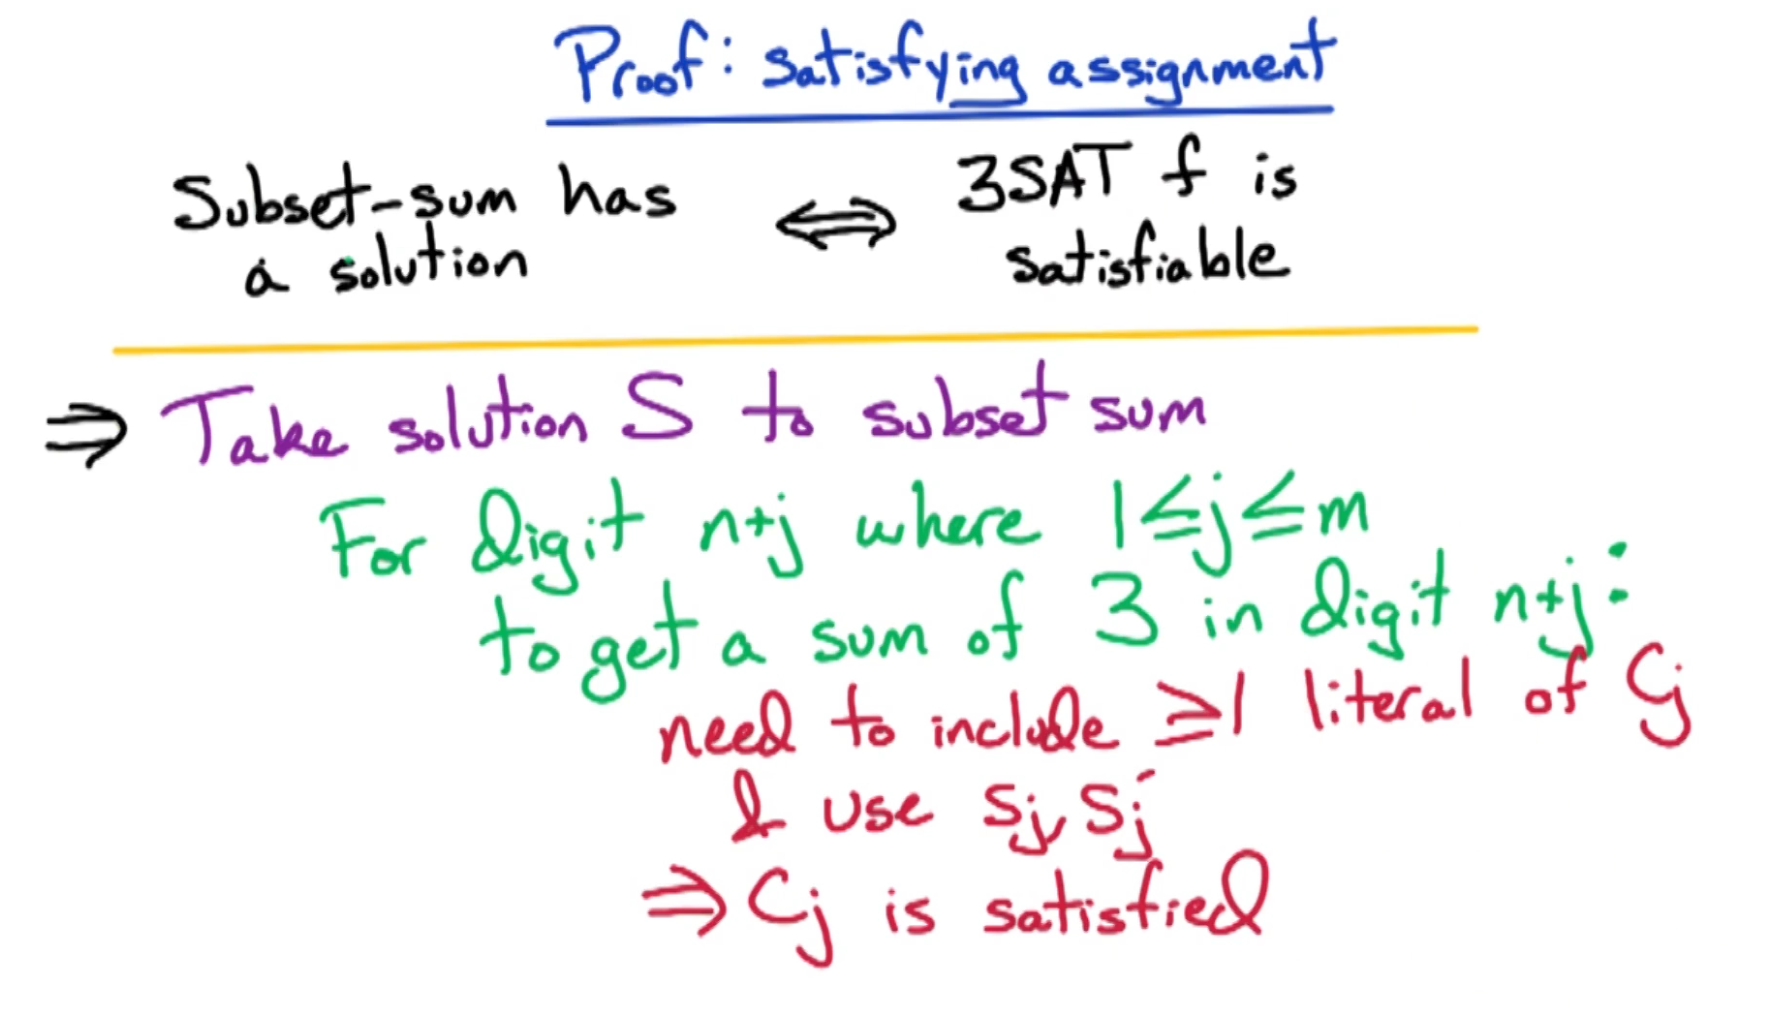 Proof: satisfying assignment
Subset-sum has a solution ⟺ 3SAT f is satisfiable
⇒ Take solution S to subset sum
For digit n+j where 1≤j≤m
to get a sum of 3 in digit n+j:
need to include ≥1 literal of Cj
& use Sj, Sj'
⇒ Cj is satisfied